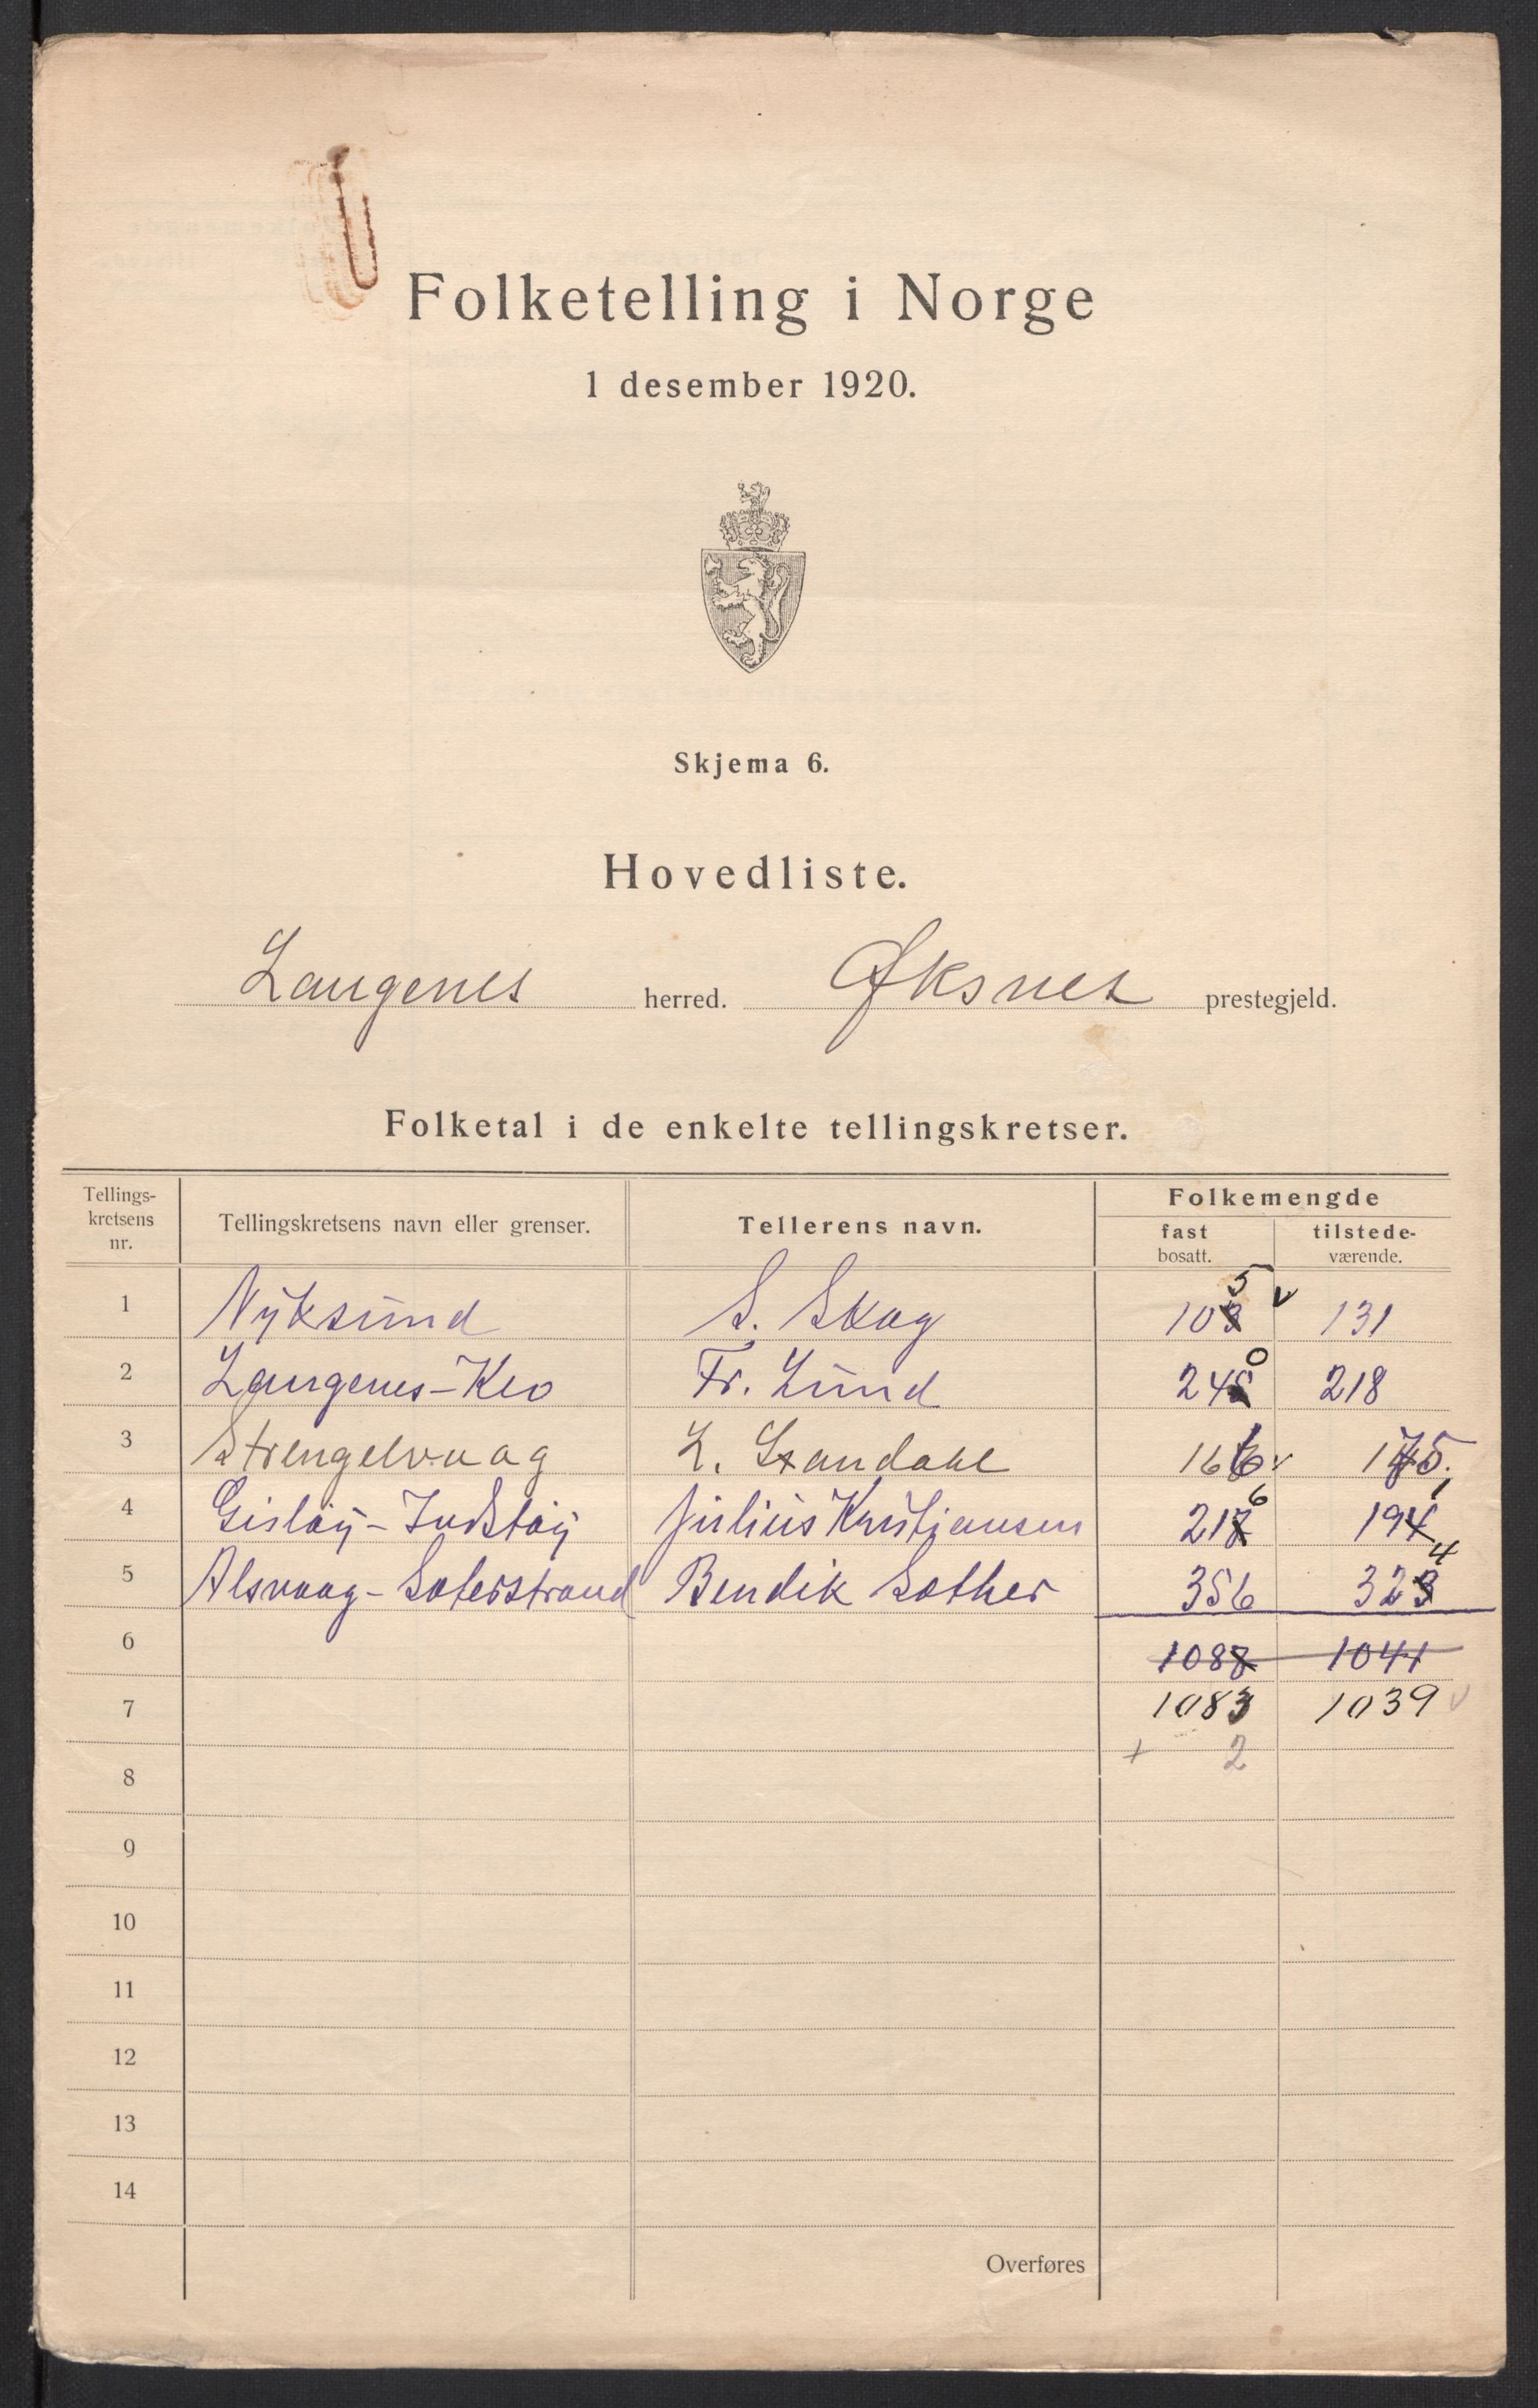 Folketelling i Norge
1 desember 1920.
Skjema 6.
Hovedliste.
Langenes herred. Øksnes prestegjeld.
Folketal i de enkelte tellingskretser.
Tellings-kretsens nr. Tellingskretsens navn eller grenser. Tellerens navn. Folkemengde
fast bosatt. tilstede-værende.
1 Nyksund S. Skog 105 131
2 Langenes-Klo Fr. Lund 240 218
3 Strengelvaag L. Sandahl 166 175
4 Gisløy- Julius Kristjansen 216 191
5 Alsvaag- Bendik Sother 356 324
6 1087 1041
7 1083 1039
+ 2
8
9
10
11
12
13
14
Overføres